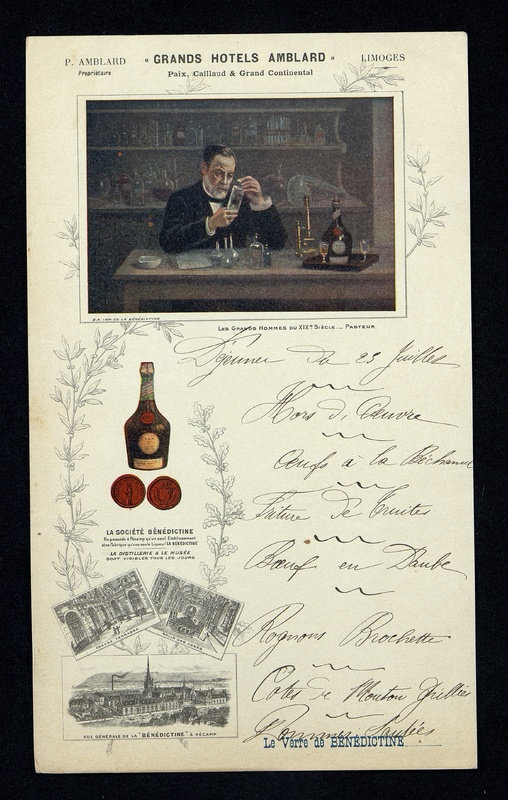 P. AMBLARD « GRANDS HOTELS AMBLARD » LIMOGES
Propriétaire Paix, Caillaud & Grand Continental
LES GRANDS HOMMES DU XIXe SIÈCLE._ PASTEUR
Déjeuner Du 25 Juillet
Hors d'Œuvre
Œufs à la Béchamel
Friture de Truites
Bœuf en Daube
Rognons Brochette
Cotes de Mouton Grillées
Pommes Sautées
Le Verre de BÉNÉDICTINE
LA SOCIÉTÉ BÉNÉDICTINE
Ne possède à Fécamp qu'un seul Etablissement
et ne fabrique qu'une seule Liqueur LA BÉNÉDICTINE
LA DISTILLERIE & LE MUSÉE
SONT VISIBLES TOUS LES JOURS
VUE GÉNÉRALE DE LA "BÉNÉDICTINE" À FÉCAMP